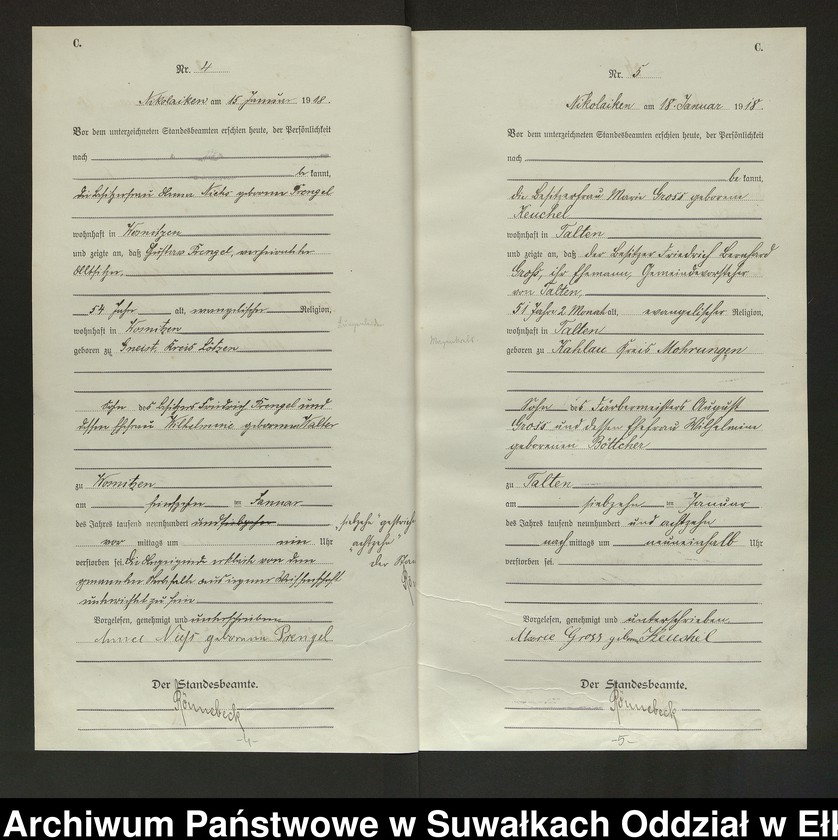 C.
Nr. 4
Nikolaiken am 15 Januar 1918.
Vor dem unterzeichneten Standesbeamten erschien heute, der Persönlichkeit
nach
be kannt,
die Besitzerfrau Anna Niess geborene Prengel
wohnhaft in
und zeigte an, daß Gustav Prengel, verheirateter
Altsitzer,
54 Jahr alt, evangelischer Religion,
wohnhaft in
geboren zu Kreis Lötzen
Sohn des Besitzers Friedrich Prengel und
dessen Ehefrau Wilhelmine geborenen Walter
zu
am fünfzehn ten Januar
des Jahres tausend neunhundert und siebzehn
vor mittags um Uhr
verstorben sei. Die Anzeigende erklärte von dem
genannten Sterbefalle aus eigener Wissenschaft
unterrichtet zu sein
Vorgelesen, genehmigt und unterschrieben
geborene Prengel
Der Standesbeamte.
Rönnebeck
-4-
"siebzehn" gestrich
"achtzehn"
der Stan
Rö
C.
Nr. 5
Nikolaiken am 18. Januar 1918.
Vor dem unterzeichneten Standesbeamten erschien heute, der Persönlichkeit
nach
be kannt,
die Besitzerfrau Marie Gross geborene
Keuchel
wohnhaft in Talten
und zeigte an, daß der Besitzer Friedrich Bernhard
Groß, ihr Ehemann, Gemeindevorsteher
von Talten,
51 Jahre 2 Monat alt, evangelischer Religion,
wohnhaft in Talten
geboren zu Kahlau Kreis Mohrungen
Sohn des Färbermeisters August
Gross und dessen Ehefrau Wilhelmine
geborenen Böttcher
zu Talten
am siebzehn ten Januar
des Jahres tausend neunhundert und achtzehn
nach mittags um neuneinhalb Uhr
verstorben sei.
Vorgelesen, genehmigt und unterschrieben.
Marie Gross geborene Keuchel
Der Standesbeamte.
Rönnebeck
-5-
Archiwum Państwowe w Suwałkach Oddział w Eł